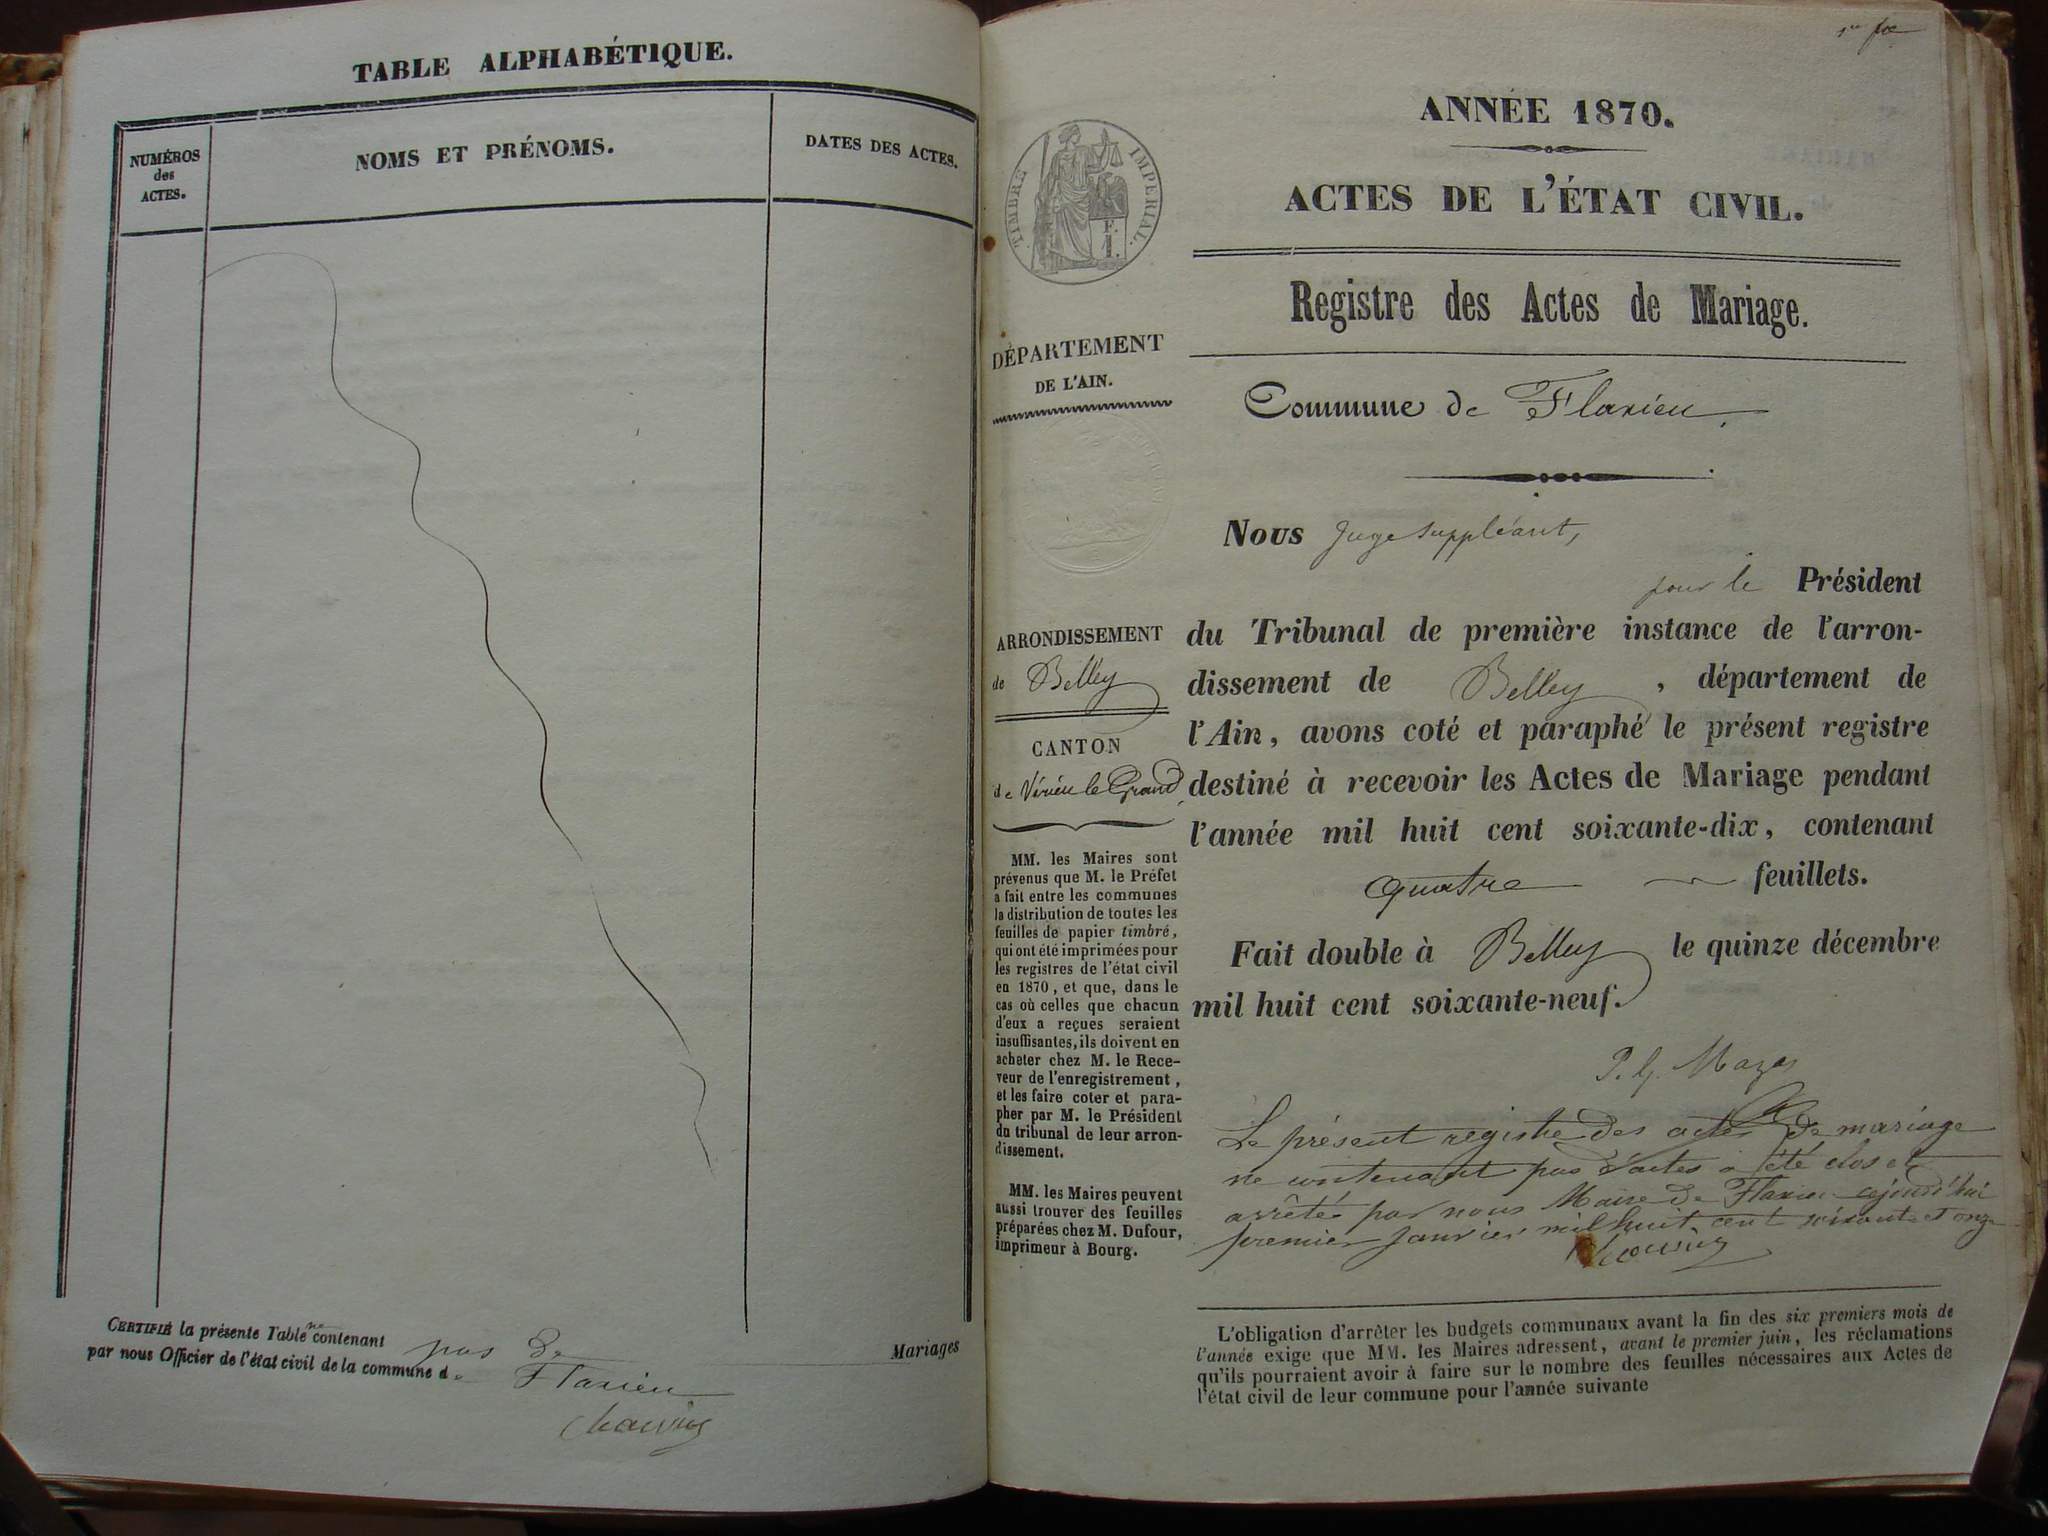 TABLE ALPHABÉTIQUE.
NUMÉROS
des
ACTES.
NOMS ET PRÉNOMS.
DATES DES ACTES.
CERTIFIÉ la présente Table ne contenant pas de Mariages
par nous Officier de l'état civil de la commune de Flaxieu
1er
ANNÉE 1870.
ACTES DE L'ÉTAT CIVIL.
TIMBRE IMPÉRIAL.
F.
1.
Registre des Actes de Mariage.
DÉPARTEMENT
DE L'AIN.
Commune de Flaxieu
Nous Juge suppléant,
pour le Président
du Tribunal de première instance de l'arron-
dissement de Belley, département de
l'Ain, avons coté et paraphé le présent registre
destiné à recevoir les Actes de Mariage pendant
l'année mil huit cent soixante-dix, contenant
quatre feuillets.
Fait double à Belley le quinze décembre
mil huit cent soixante-neuf.
P. G. Mazas
Le présent registre des actes de mariage
ne contenant pas d'actes a été clos et
arrêté par nous Maire de Flaxieu cejourd'hui
premier Janvier mil huit cent soixante et onze
ARRONDISSEMENT
de Belley
CANTON
de Virieu le Grand
MM. les Maires sont
prévenus que M. le Préfet
a fait entre les communes
la distribution de toutes les
feuilles de papier timbré,
qui ont été imprimées pour
les registres de l'état civil
en 1870, et que, dans le
cas où celles que chacun
d'eux a reçues seraient
insuffisantes, ils doivent en
acheter chez M. le Rece-
veur de l'enregistrement,
et les faire coter et para-
pher par M. le Président
du tribunal de leur arron-
dissement.
MM. les Maires peuvent
aussi trouver des feuilles
préparées chez M. Dufour,
imprimeur à Bourg.
L'obligation d'arrêter les budgets communaux avant la fin des six premiers mois de
l'année exige que MM. les Maires adressent, avant le premier juin, les réclamations
qu'ils pourraient avoir à faire sur le nombre des feuilles nécessaires aux Actes de
l'état civil de leur commune pour l'année suivante